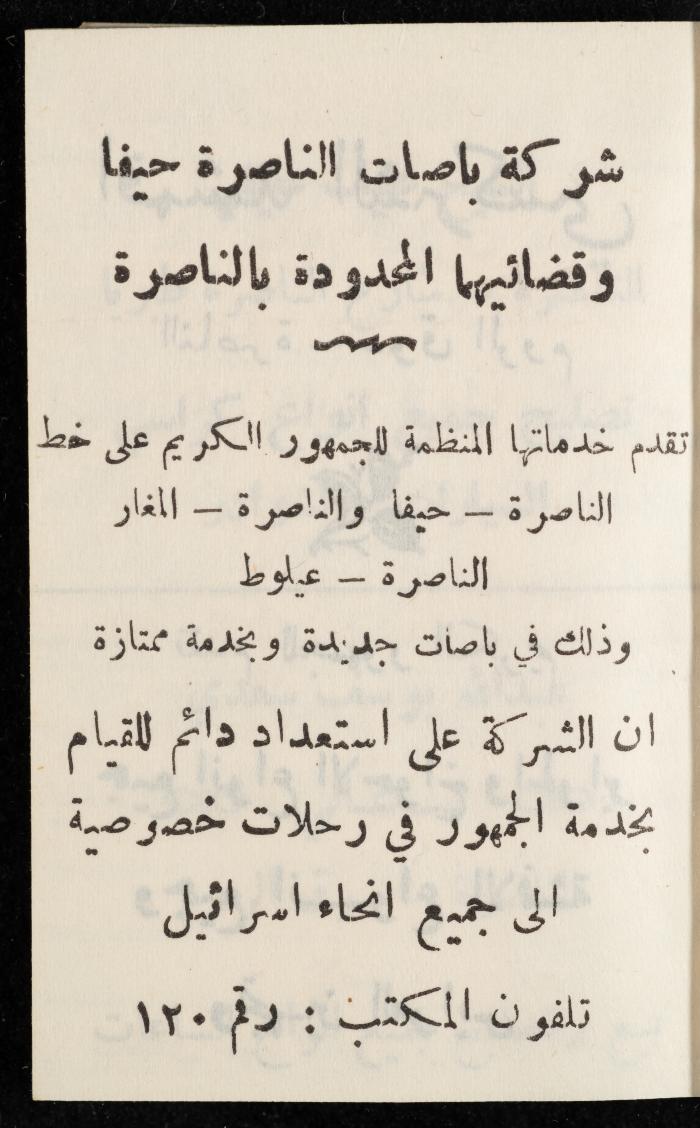 شركة باصات الناصرة حيفا
وقضائيهما المحدودة بالناصرة
تقدم خدماتها المنظمة للجمهور الكريم على خط
الناصرة – حيفا والناصرة – المغار
الناصرة – عيلوط
وذلك في باصات جديدة وبخدمة ممتازة
ان الشركة على استعداد دائم للقيام
بخدمة الجمهور في رحلات خصوصية
الى جميع انحاء اسرائيل
تلفون المكتب : رقم ١٢٠